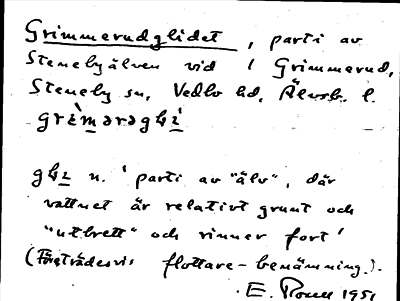 Grimmerudglidet, parti av
Stenebyälven vid Grimmerud,
Steneby sn, Vedbo hd, Älvsb. l.
n. 'parti av "älv", där
vattnet är relativt grunt och
"utbrett" och rinner fort'
(Företrädesvis flottare-benämning.).
E. 1951